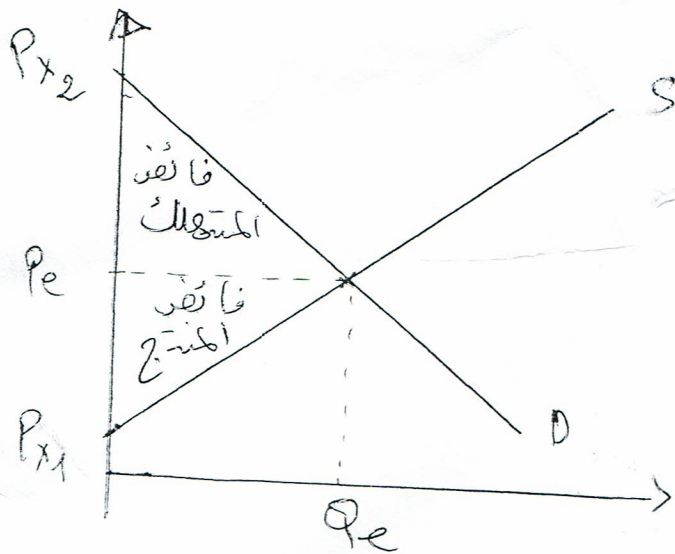 Px2
S
فائض
المستهلك
Pe
فائض
المنتج
Px1
D
Qe